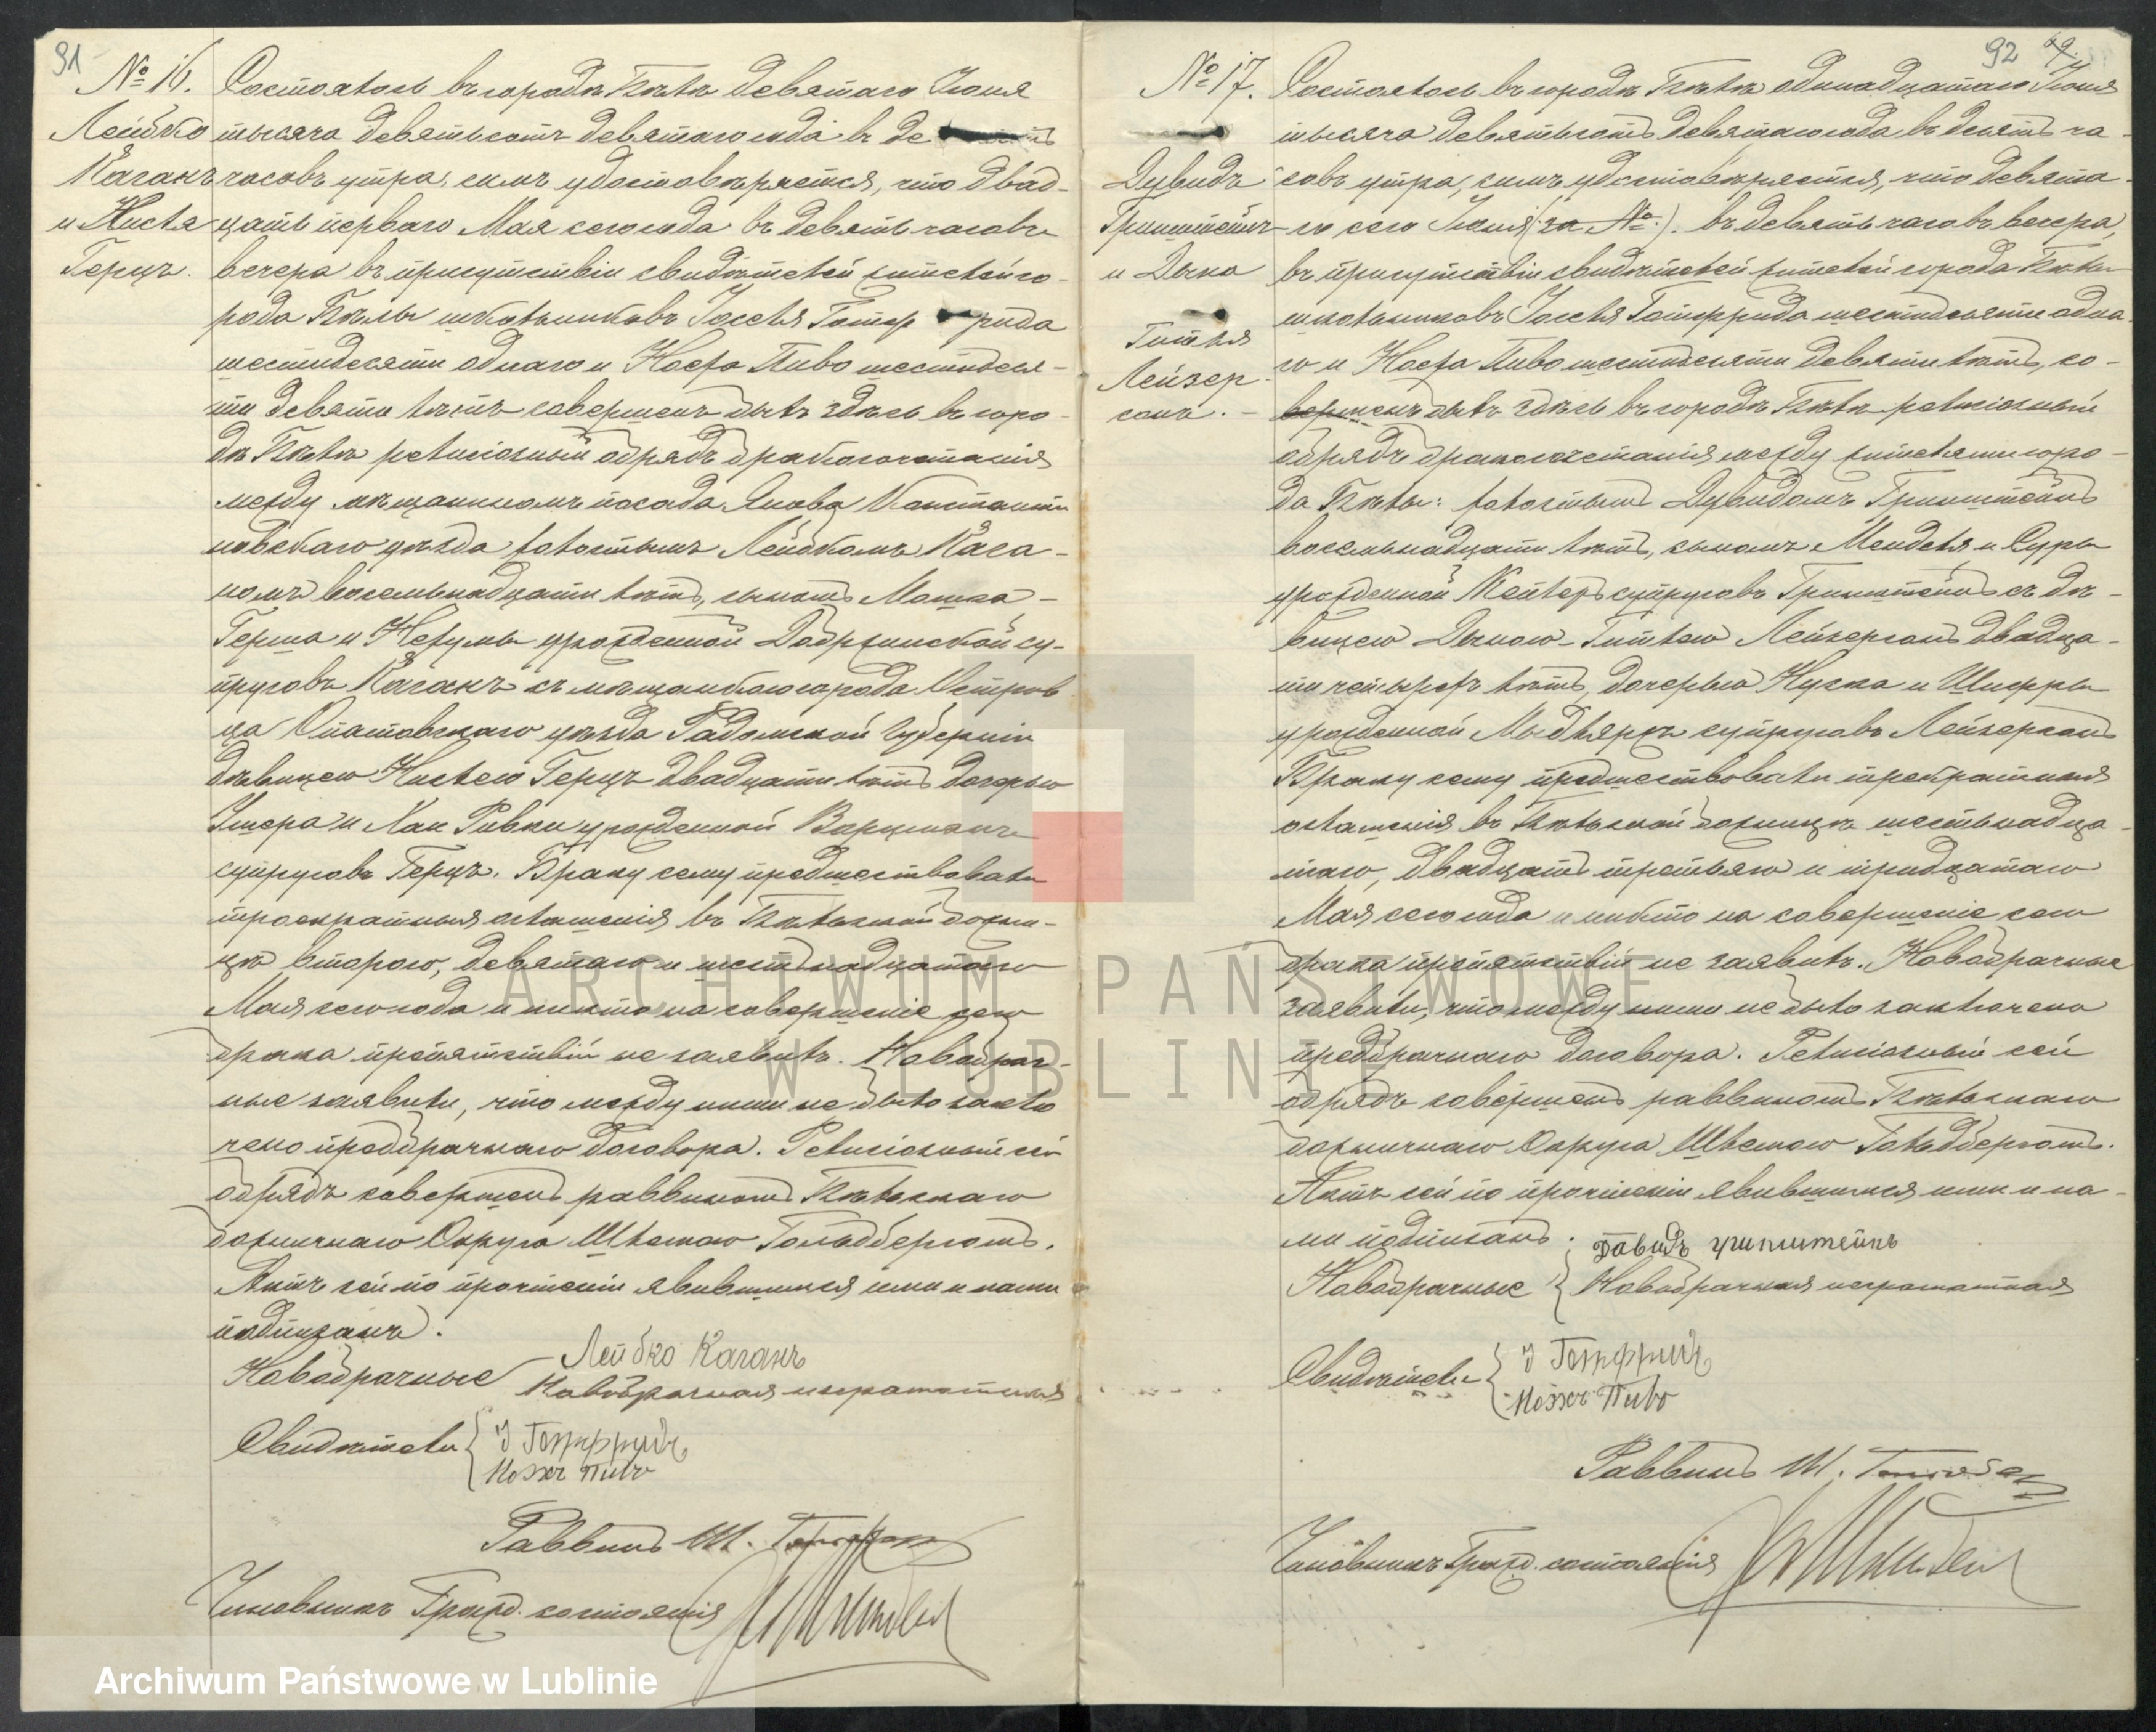 91
№ 16.
Лейбко
Каганъ
и Хиля
Герцъ.
Состоялось въ городѣ Бѣлѣ девятаго Іюня
тысяча девятьсотъ девятаго года въ де
часовъ утра, симъ удостовѣряется, что двад-
цать перваго Мая сего года въ девять часовъ
вечера въ присутствіи свидѣтелей жителей го-
рода Бѣлы школьниковъ Іоселя Готфрида
шестидесяти одного и Ноеха Пиво шестидеся-
ти девяти лѣтъ совершенъ былъ здѣсь въ горо-
дѣ Бѣлѣ религіозный обрядъ бракосочетанія
между мѣщаниномъ посада Янова Константи
новскаго уѣзда холостымъ Лейбкомъ Кага-
номъ восемьнадцати лѣтъ, сыномъ Мошка-
Герша и Нехумы урожденной Добржинской су-
пруговъ Каганъ съ мѣщанкою города Островца
Опатовскаго уѣзда Радомской Губерніи
дѣвицею Герцъ двадцати лѣтъ дочерью
Ушера и Хаи Ривки урожденной
супруговъ Герцъ. Браку сему предшествовали
троекратныя оглашенія въ Бѣльской божни-
цѣ втораго, девятаго и шестнадцатаго
Мая сего года и никто на совершеніе сего
брака препятствій не заявилъ. Новобрач-
ные заявили, что между ними не было заклю
чено предбрачнаго договора. Религіозный сей
обрядъ совершенъ раввиномъ Бѣльскаго
божничнаго Округа Шлемою Гольдбергомъ.
Актъ сей по прочтеніи явившимся ими и нами
подписанъ.
Новобрачные Лейбко Каганъ
Новобрачная неграмотная
Свидѣтели І Готфридъ
Ноэхъ Пиво
Раввинъ Ш.
Чиновникъ Гражд. состоянія
92
№ 17.
Дувидъ
Гринштейнъ
и Дына
Гитля
Лейзер-
сонъ. -
Состоялось въ городѣ Бѣлѣ одинадцатаго Іюня
тысяча девятьсотъ девятаго года въ десять ча-
совъ утра, симъ удостовѣряется, что девята-
го сего Іюня (за №). въ девять часовъ вечера,
въ присутствіи свидѣтелей жителей города Бѣлы
школьниковъ Іоселя Готфрида шестидесяти одно-
го и Ноеха Пиво шестидесяти девяти лѣтъ, со-
вершенъ былъ здѣсь въ городѣ Бѣлѣ религіозный
обрядъ бракосочетанія между жителями горо-
да Бѣлы: холостымъ Дувидомъ Гринштейнъ
восемьнадцати лѣтъ, сыномъ Менделя и Суры
урожденной супруговъ Гринштейнъ съ дѣ-
вицею Дыною-Гитлею Лейзерсонъ двадца-
ти четырехъ лѣтъ, дочерью Нуска и Шифры
урожденной супруговъ Лейзерсонъ
Браку сему предшествовали троекратныя
оглашенія въ Бѣльской божницѣ шестьнадца-
таго, двадцать третьяго и тридцатаго
Мая сего года и никто на совершеніе сего
брака препятствій не заявилъ. Новобрачные
заявили, что между ними не было заключено
предбрачнаго договора. Религіозный сей
обрядъ совершенъ раввиномъ Бѣльскаго
божничнаго Округа Шлемою Гольдбергомъ.
Актъ сей по прочтеніи явившимся ими и на-
ми подписанъ.
Новобрачные Давидъ Гринштейнъ
Новобрачная неграмотная
Свидѣтели І Готфридъ
Ноэхъ Пиво
Раввинъ Ш.
Чиновникъ Гражд. состоянія
ARCHIWUM PAŃSTWOWE
W LUBLINIE
Archiwum Państwowe w Lublinie